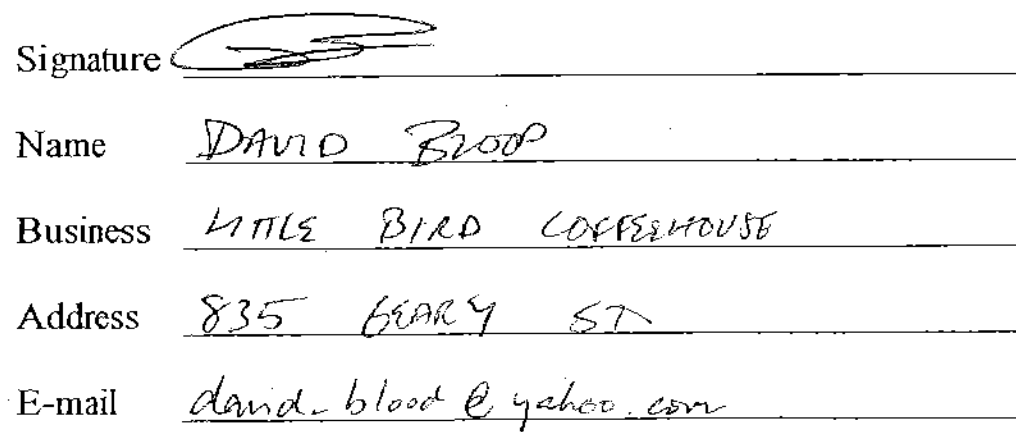 Signature
Name DAVID BLOOD
Business LITTLE BIRD COFFEEHOUSE
Address 835 GEARY ST
E-mail david_blood@yahoo.com